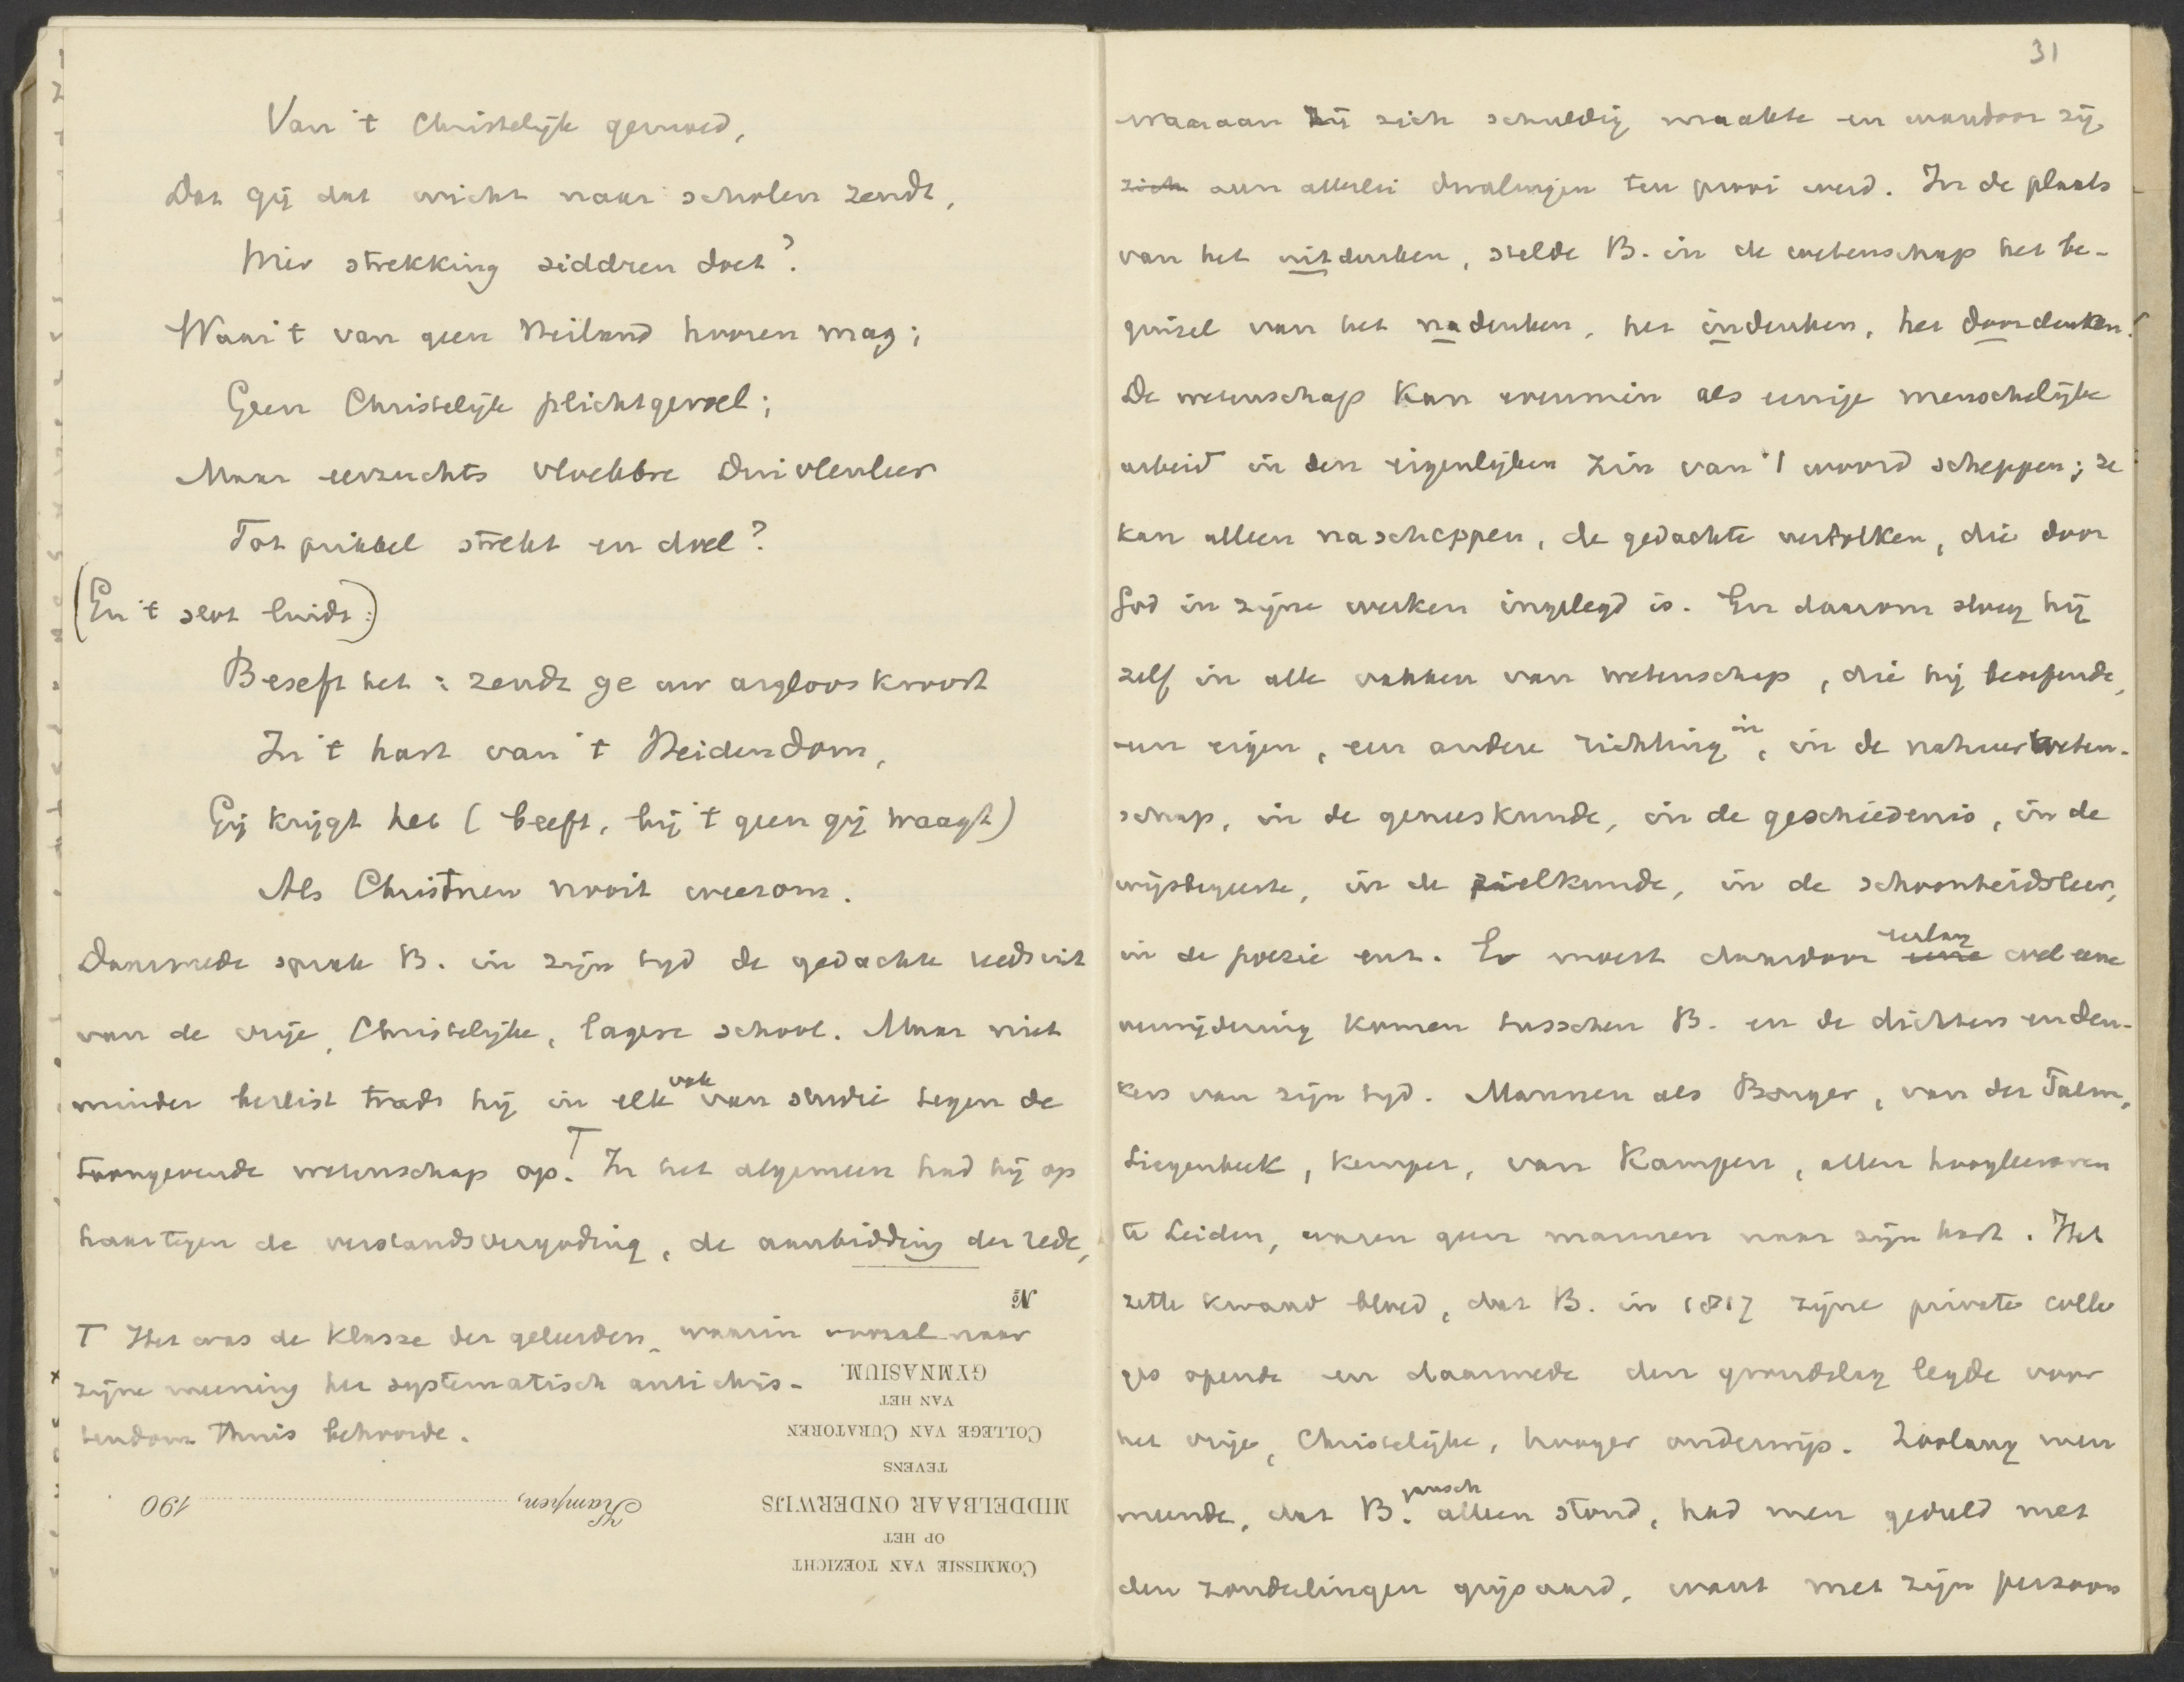 Van 't Christelijk gemoed,
Dat gij dat wicht naar scholen zendt,
Wier strekking siddren doet?
Waar 't van geen Heiland hooren mag;
Geen Christelijk plichtgevoel;
Maar eerzuchts vloekbre Duivlenleer
Tot prikkel strekt en doel?
(En 't slot luidt:)
Beseft het: zendt ge uw argloos kroost
In 't hart van 't Heidendom,
Gij krijgt het (beeft, bij 't geen gij waagt)
Als Christnen nooit weerom.
Daarmede sprak B. in zijn tijd de gedachte reeds uit
van de vrije, Christelijke, lagere school. Maar niet
minder beslist trad hij in elk vak van studie tegen de
toongevende wetenschap op. T In het algemeen had hij op
haar tegen de verstandsvergoding, de aanbidding der rede,
T Het was de klasse der geleerden, waarin vooral naar
zijne meening het systematisch antichris-
tendom thuis behoorde.
No
GYMNASIUM.
VAN HET
COLLEGE VAN CURATOREN
TEVENS
MIDDELBAAR ONDERWIJS
OP HET
COMMISSIE VAN TOEZICHT
Kampen, 190
31
waaraan zij zich schuldig maakte en waardoor zij
zich aan allerlei dwalingen ten prooi werd. In de plaats
van het uitdenken, stelde B. in de wetenschap het be-
ginsel van het nadenken, het indenken, het doordenken.
De wetenschap kan evenmin als eenige menschelijke
arbeid in den eigenlijken zin van 't woord scheppen; ze
kan alleen nascheppen, de gedachte vertolken, die door
God in zijne werken ingelegd is. En daarom sloeg hij
zelf in alle vakken van wetenschap, die hij beoefende,
een eigen, een andere richting in, in de natuurweten-
schap, in de geneeskunde, in de geschiedenis, in de
wijsbegeerte, in de zielkunde, in de schoonheidsleer,
in de poezie enz. Er moest daardoor eerlang eene wel eene
verwijdering komen tusschen B. en de dichters en den-
kers van zijn tijd. Mannen als Borger, van der Palm,
Siegenbeek, Kemper, van Kampen, allen hoogleeraren
te Leiden, waren geen mannen naar zijn hart. Het
zette kwaad bloed, dat B. in 1817 zijne private colle
ges opende en daarmede den grondslag legde voor
het vrije, Christelijke, hooger onderwijs. Zoolang men
meende, dat B. gansch alleen stond, had men geduld met
den zonderlingen grijsaard, want met zijn persoon